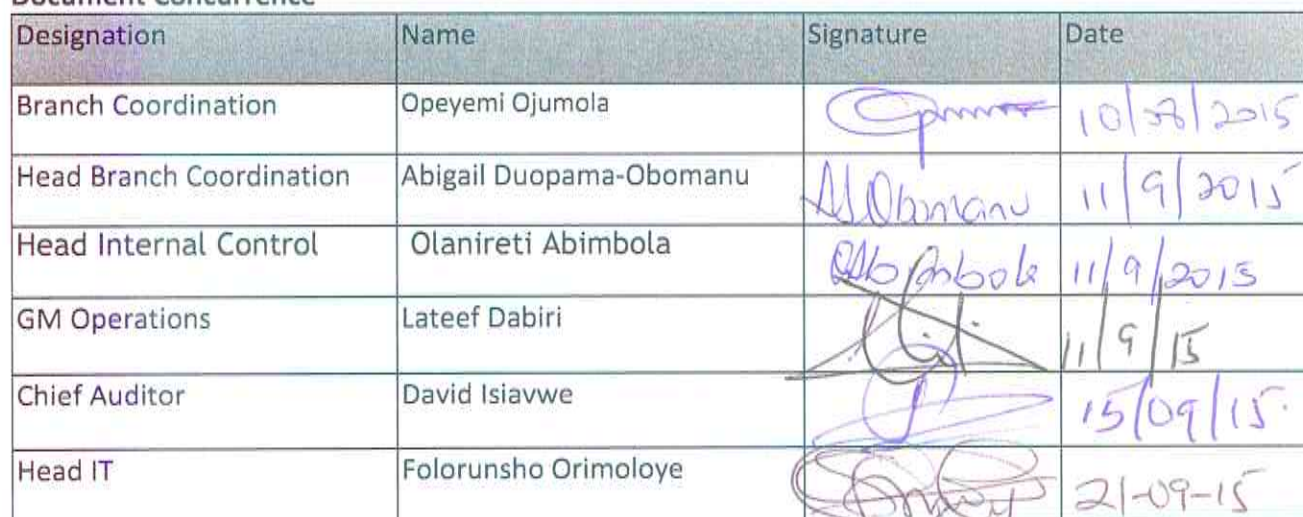 Document Concurrence
Designation Name Signature Date
Branch Coordination Opeyemi Ojumola 10/08/2015
Head Branch Coordination Abigail Duopama-Obomanu Obomanu 11/9/2015
Head Internal Control Olanireti Abimbola 11/9/2015
GM Operations Lateef Dabiri 11/9/15
Chief Auditor David Isiavwe 15/09/15
Head IT Folorunsho Orimoloye 21-09-15